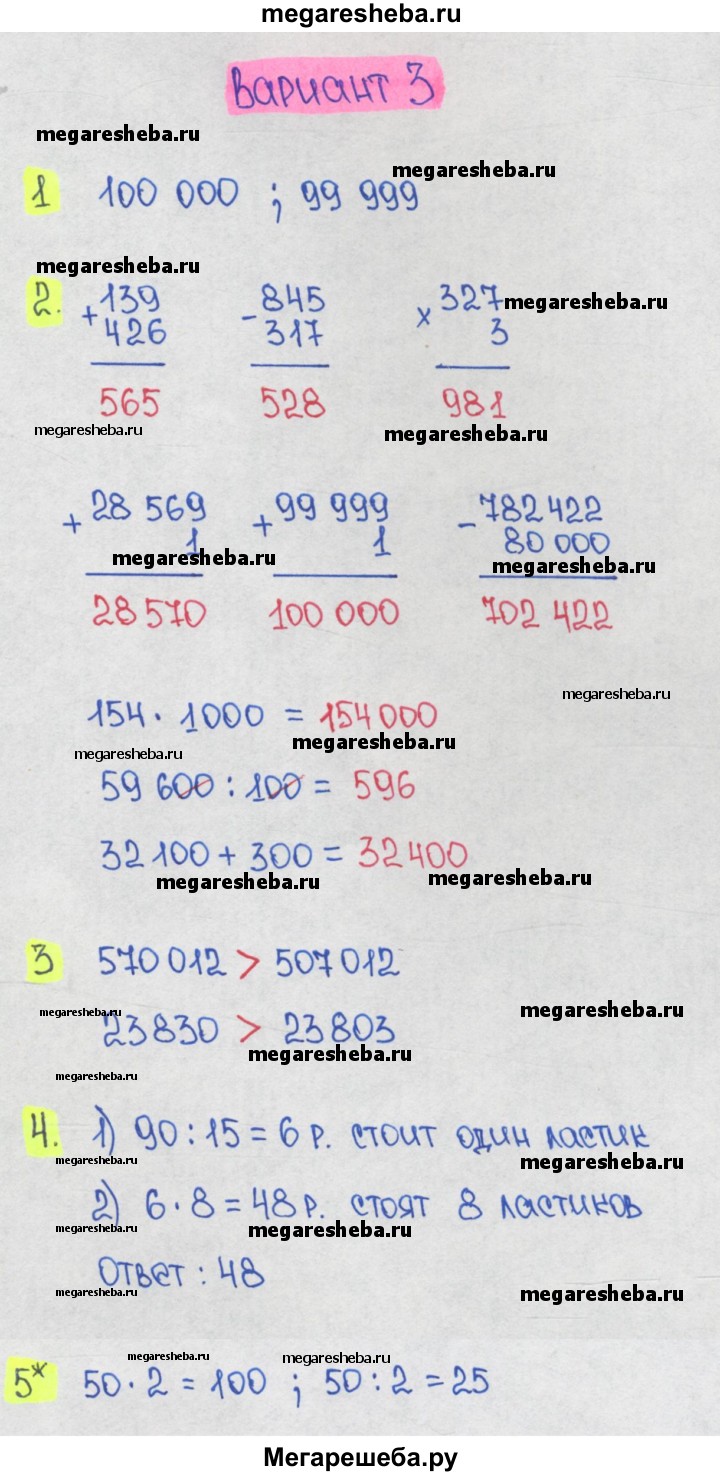 megaresheba.ru
Вариант 3
megaresheba.ru
megaresheba.ru
1 100 000 ; 99 999
megaresheba.ru
2. +139 -845 ×327 megaresheba.ru
426 317 3
565 528 981
megaresheba.ru megaresheba.ru
+28 569 +99 999 -782 422
1 1 80 000
megaresheba.ru megaresheba.ru
28 570 100 000 702 422
megaresheba.ru
154 · 1000 = 154 000
megaresheba.ru megaresheba.ru
59 600 : 100 = 596
32 100 + 300 = 32 400
megaresheba.ru megaresheba.ru
3 570 012 > 507 012
megaresheba.ru megaresheba.ru
23 830 > 23 803
megaresheba.ru
megaresheba.ru
4. 1) 90 : 15 = 6 р. стоит один ластик
megaresheba.ru megaresheba.ru
2) 6 · 8 = 48 р. стоят 8 ластиков
megaresheba.ru megaresheba.ru
Ответ : 48
megaresheba.ru megaresheba.ru
megaresheba.ru megaresheba.ru
5* 50 · 2 = 100 ; 50 : 2 = 25
Мегарешеба.ру